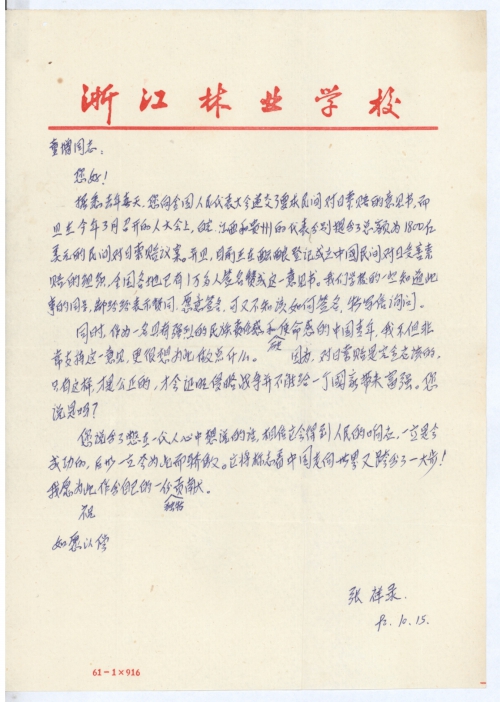 浙江林业学校
童增同志：
您好！
据悉去年春天，您向全国人民代表大会递交了要求民间对日索赔的意见书。而
且在今年3月召开的人大会上，由江西和贵州的代表分别提出了总额为1800亿
美元的民间对日索赔议案。并且，目前正在酝酿登记成立中国民间对日受害索
赔的组织，全国各地已有1万多人签名赞成这一意见书。我们学校的一些知道此
事的同志，都纷纷表示赞同，愿意签名，可又不知该如何签名，特写信询问。
同时，作为一名具有强烈的民族责任感和使命感的中国青年，我不但非
常支持这一意见，更很想为此做点什么。因为，对日索赔是完全应该的，
只有这样，才是公正的，才会证明侵略战争并不能给一个国家带来富强。您
说是吗？
您说出了想在一代人心中想说的话，相信它会得到人民的响应，一定是会
成功的，后人一定会为此而骄傲。它将标志着中国走向世界又跨出了一大步！
我愿为此作出自己的一份贡献。
祝
如愿以偿
张祥荣
93.10.15.
61-1×916